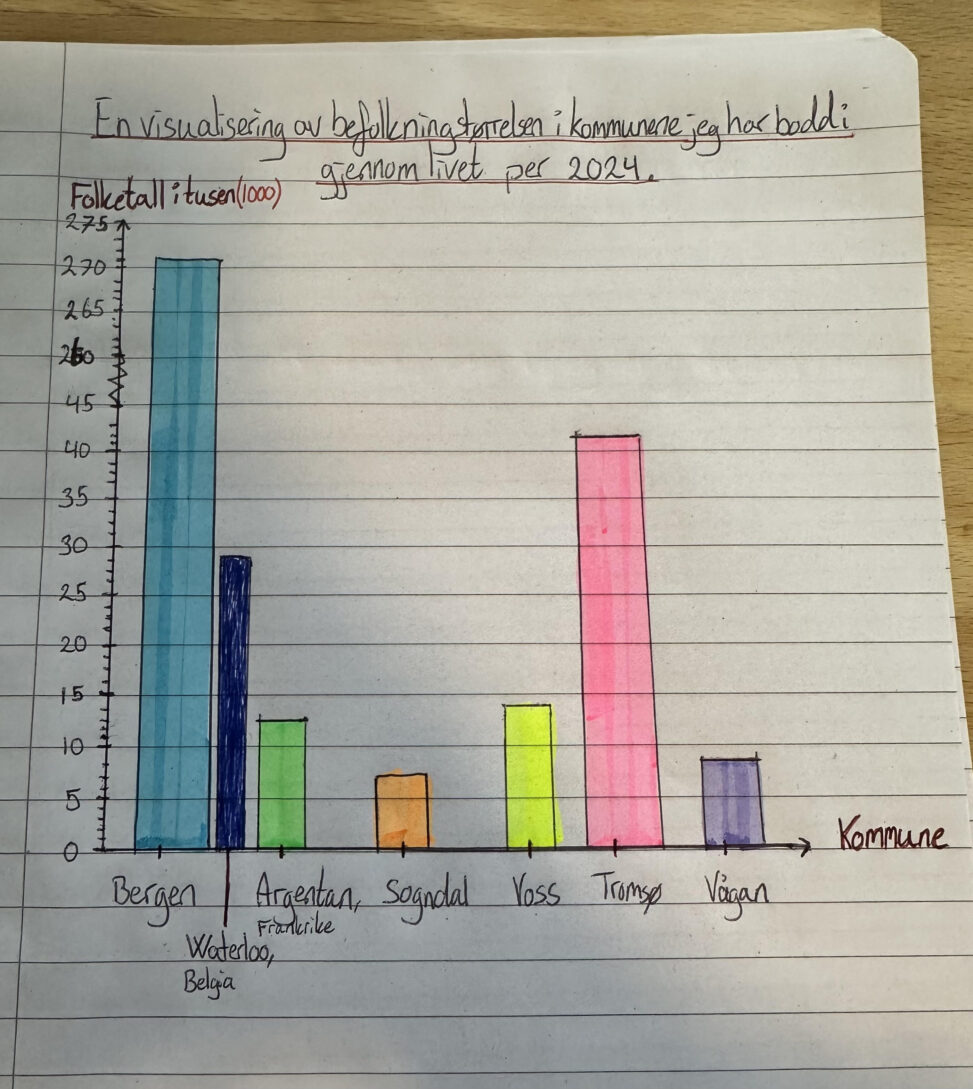 En visualisering av befolkningstørrelsen i kommunene jeg har bodd i
gjennom livet per 2024.
Folketall i tusen (1000)
275
270
265
260
45
40
35
30
25
20
15
10
5
0
Kommune
Bergen
Argentan,
Frankrike
Sogndal
Voss
Tromsø
Vågan
Waterloo,
Belgia